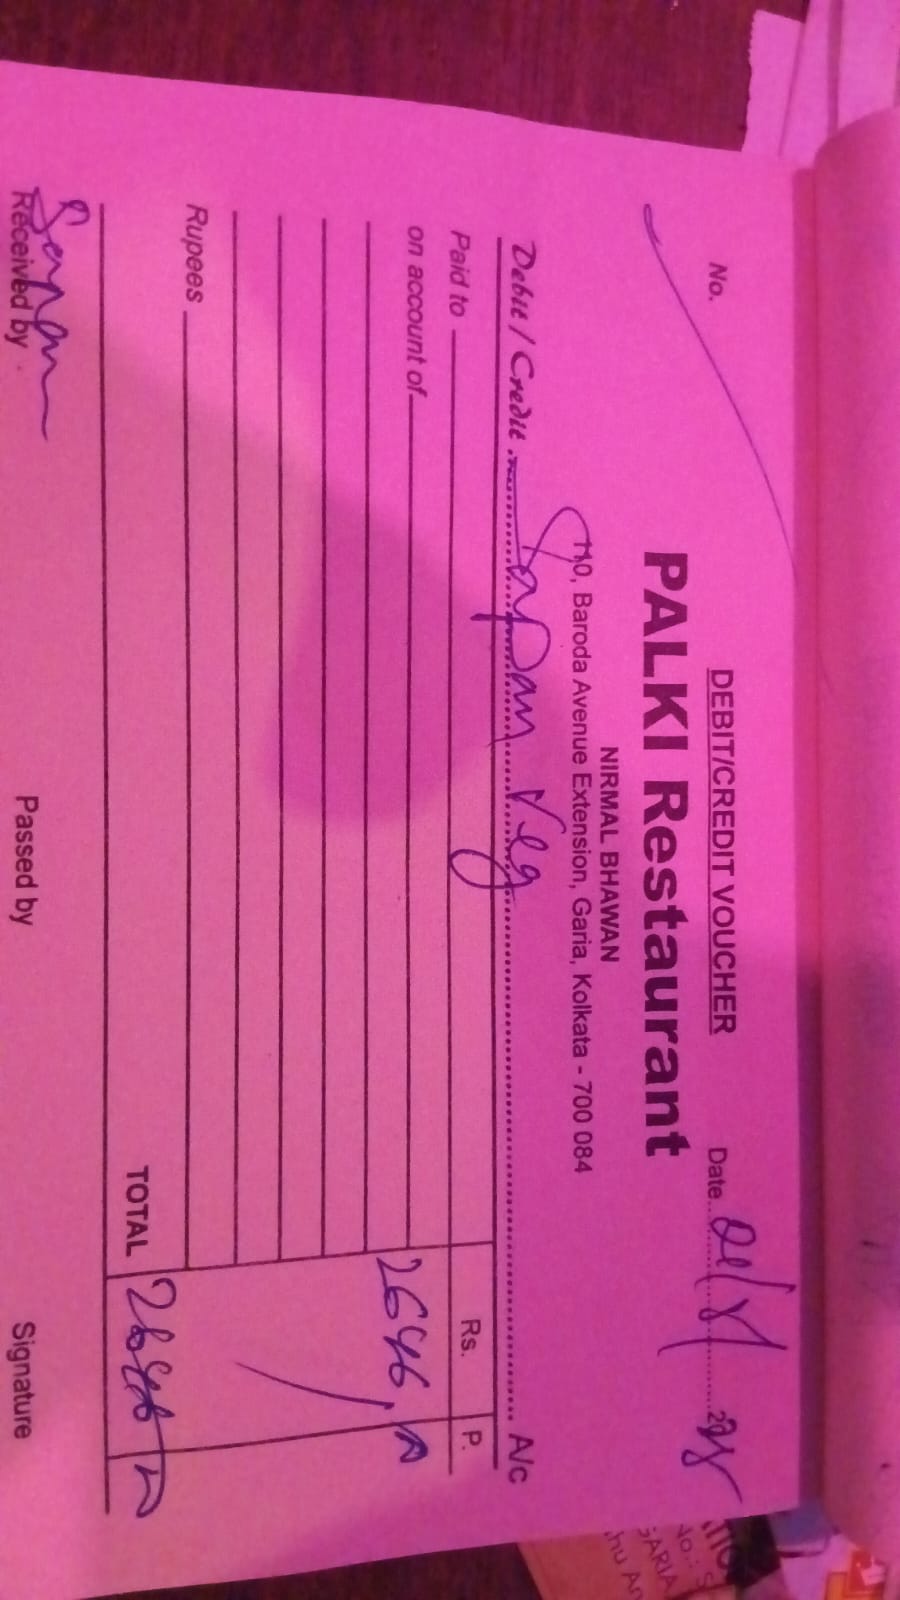 DEBIT/CREDIT VOUCHER
No. Date
PALKI Restaurant
NIRMAL BHAWAN
110, Baroda Avenue Extension, Garia, Kolkata - 700 084
Debit / Credit Sapan Veg A/c
Paid to Rs. P.
on account of 2646,
Rupees
TOTAL 2646
Sapan
Received by Passed by Signature
GARIA